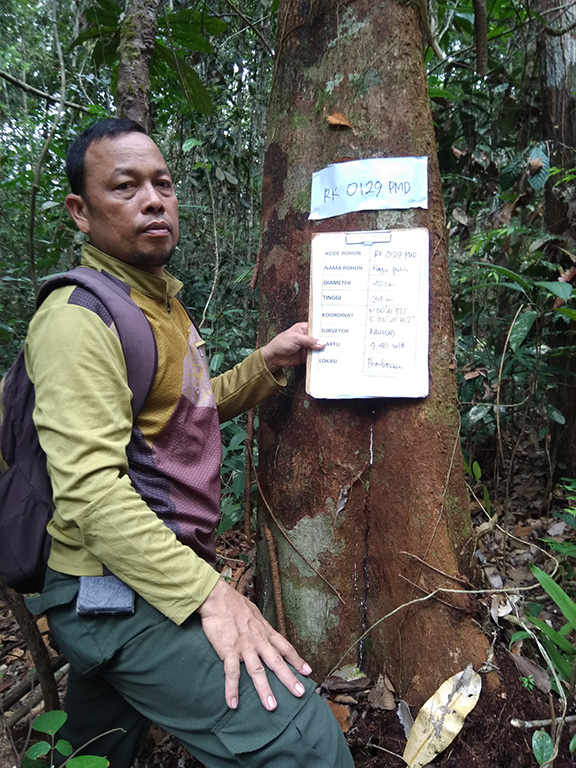 RK 0129 PMD
KODE POHON RK 0129 PMD
NAMA POHON Kayu putih
DIAMETER 40 cm
TINGGI 34 m
KOORDINAT
SURVEYOR RAHMAD
WAKTU 9.40 WIB
LOKASI